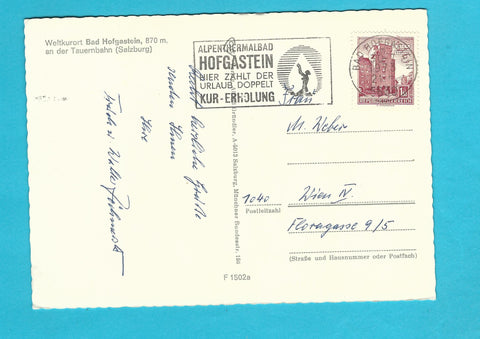 Weltkurort Bad Hofgastein, 870 m,
an der Tauernbahn (Salzburg)
ALPENTHERMALBAD
HOFGASTEIN
HIER ZÄHLT DER
URLAUB DOPPELT
KUR-ERHOLUNG
BAD HOFGASTEIN
REPUBLIK ÖSTERREICH
herzliche Grüße
senden Ihnen
Ihre
A-4013 Salzburg, Münchner Bundesstr. 160
Frau
M. Weber
1040 Wien IV.
Postleitzahl
Floragasse 9/5
(Straße und Hausnummer oder Postfach)
F 1502a